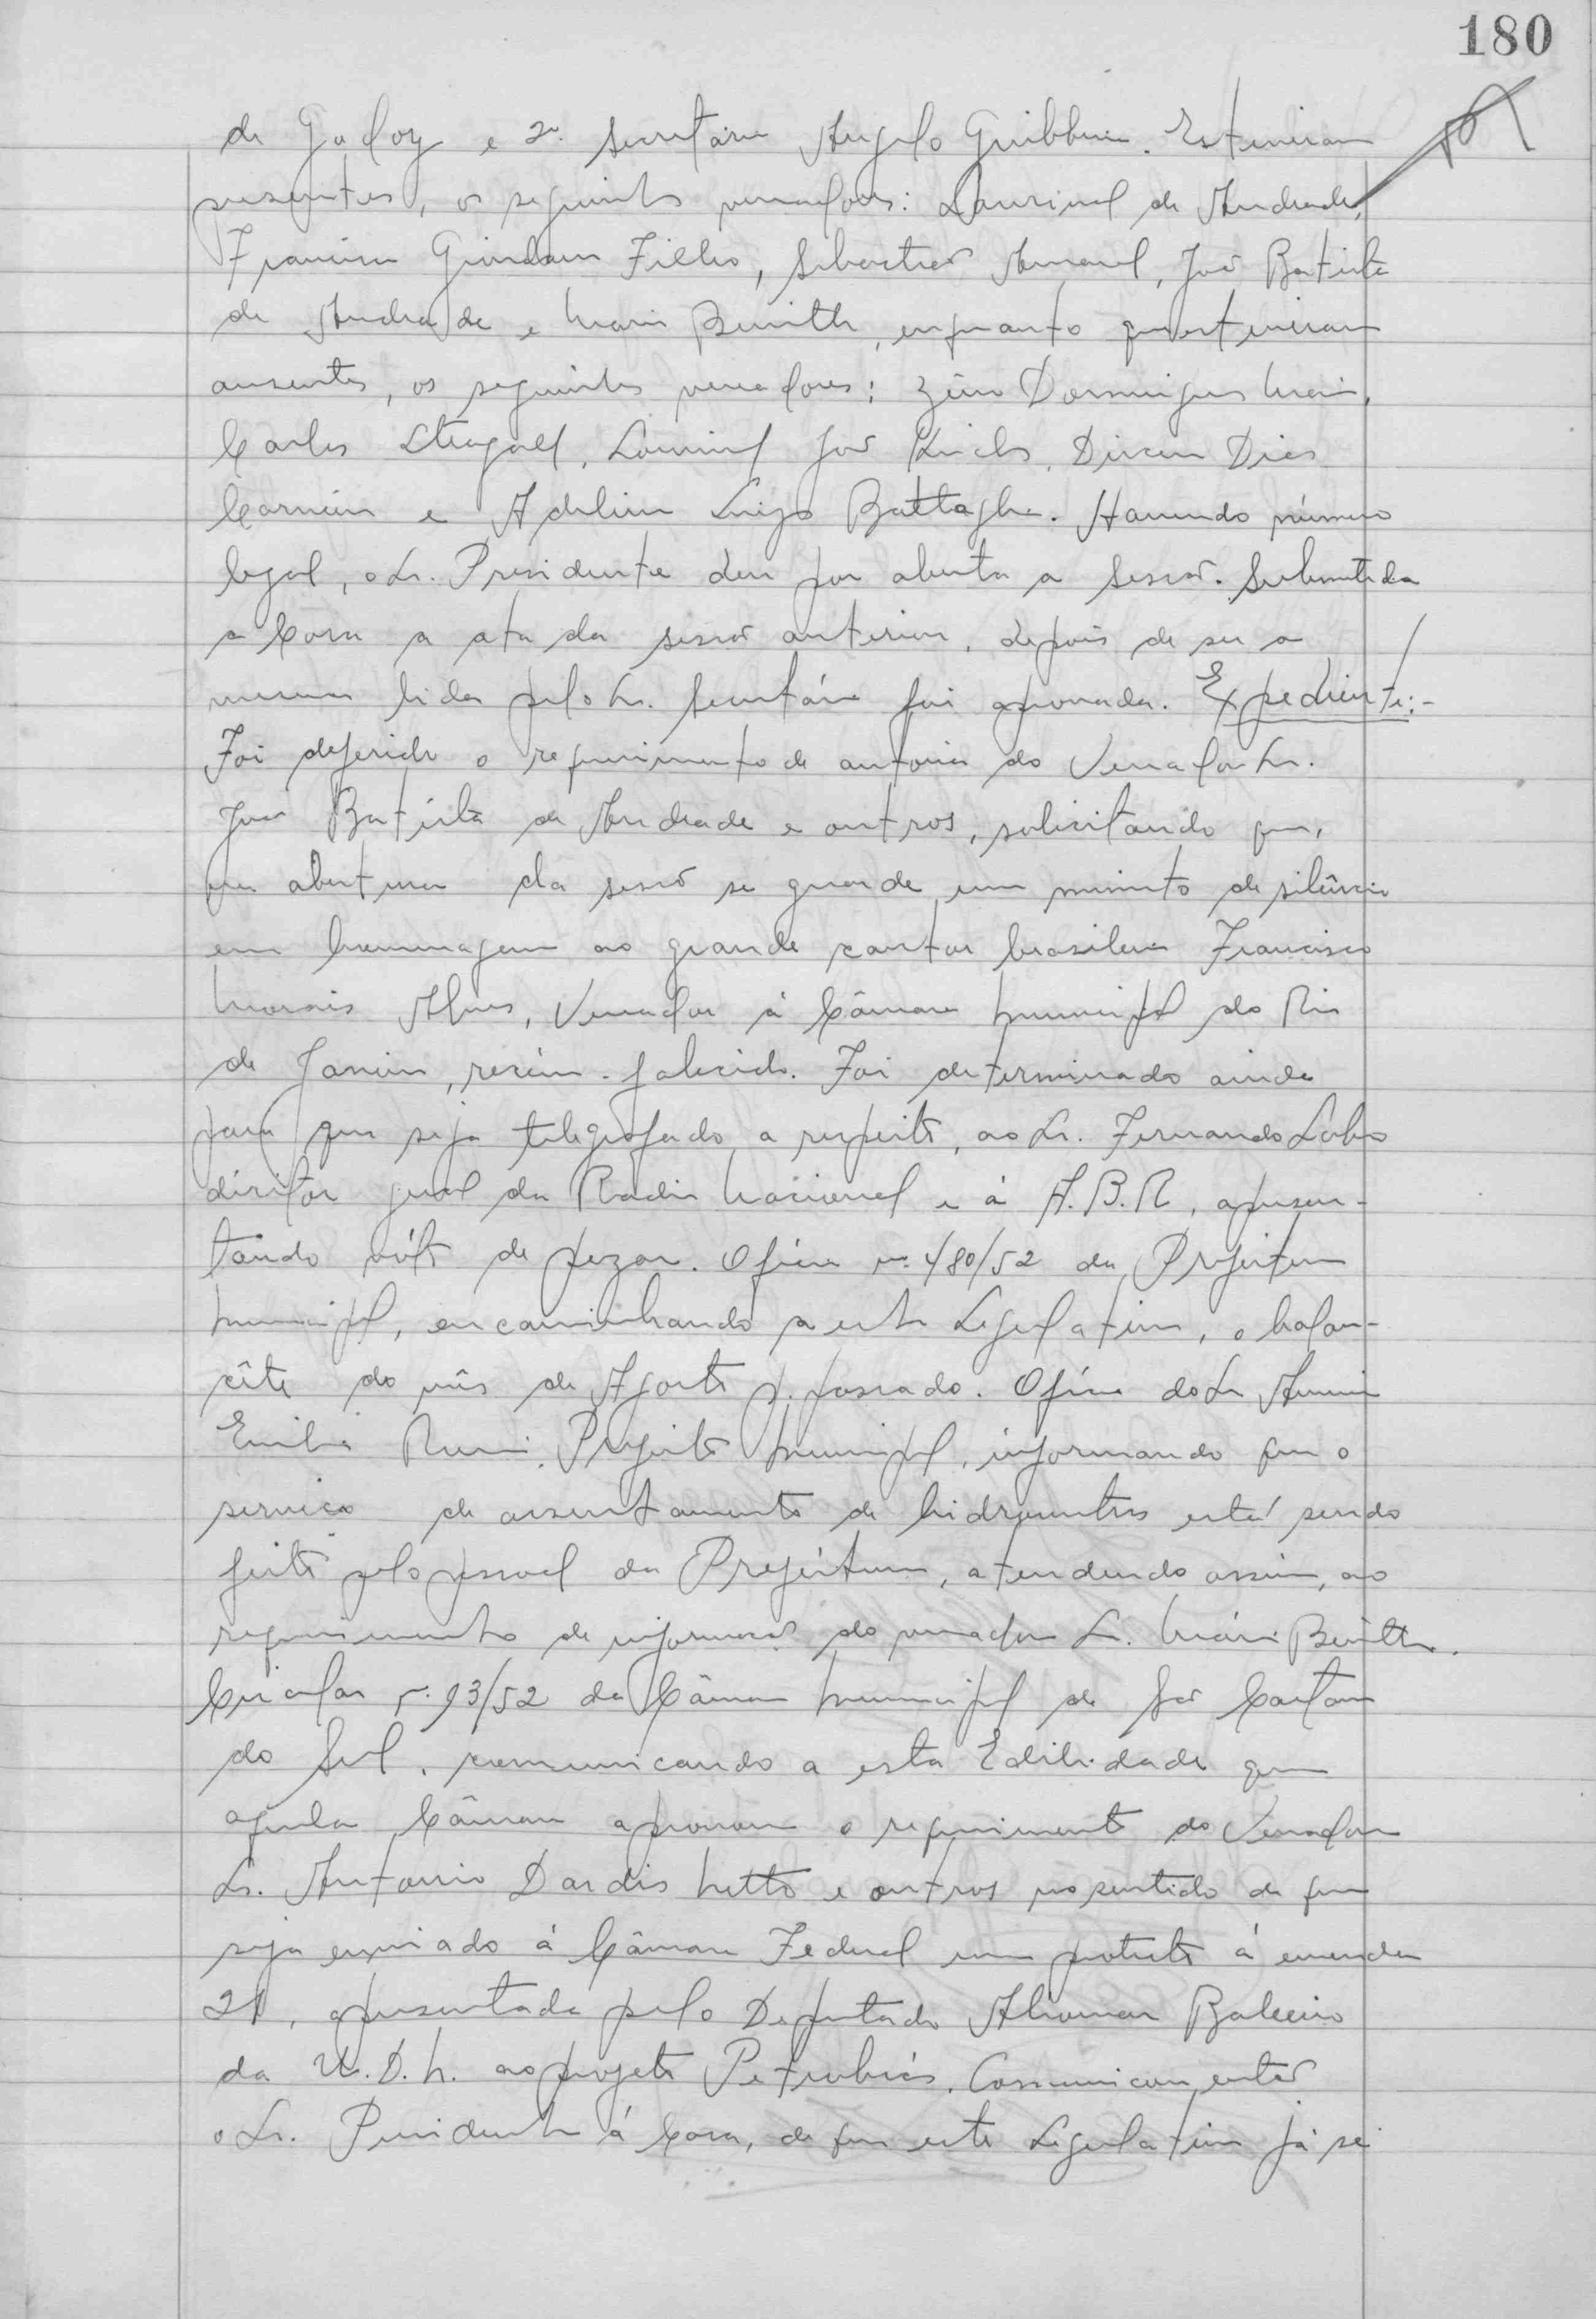 180
de Godoy e 2º Secretário Angelo Guibbin. Estiveram
presentes, os seguintes vereadores: Lourival de Andrade,
Francisco Giordano Filho, Sebastião Amaral, João Batista
de Andrade e Mario Benith, enquanto que estiveram
ausentes, os seguintes vereadores: Zino Domingues Maia,
Carlos Lourival José Dirceu Dias
Carneiro e Adelino Luigo Battaglia. Havendo número
legal, o Sr. Presidente deu por aberta a sessão. Submetida
a Casa a ata da sessão anterior, depois de ser a
mesma lida pelo Sr. Secretário foi aprovada. Expediente:-
Foi deferido o requerimento de autoria do Vereador Sr.
João Batista de Andrade e outros, solicitando que,
na abertura da sessão se guarde um minuto de silêncio
em homenagem ao grande cantor brasileiro Francisco
Morais Alves, Vereador à Câmara Municipal do Rio
de Janeiro, recém-falecido. Foi determinado ainda
para que seja telegrafado a respeito, ao Sr. Fernando Lobo
diritor geral da Radio Nacional e à A.B.R, apresen-
tando vóto de pezar. Oficio nº 480/52 da Prefeitura
Municipal, encaminhando a este Legislativo, o balan-
cête do mês de Agosto p. passado. Ofício do Sr.
Emilio Prefeito Municipal, informando que o
serviço de assentamento de hidrometros está sendo
feito pelo pessoal da Prefeitura, atendendo assim, ao
requerimento de informação do vereador Sr. Mário Benith.
Circular nº 93/52 da Câmara Municipal de São Caetano
do Sul, comunicando a esta Edilidade que
aquela Câmara aprovou o requerimento do Vereador
Sr. Antonio Dardis Netto e outros no sentido de que
seja enviado à Câmara Federal um protesto á emenda
21, apresentada pelo Deputado Aliomar Baleeiro
da U.D.N. ao projeto Petrobrás. Comunicou então
o Sr. Presidente á Casa, de que este Legislativo já se